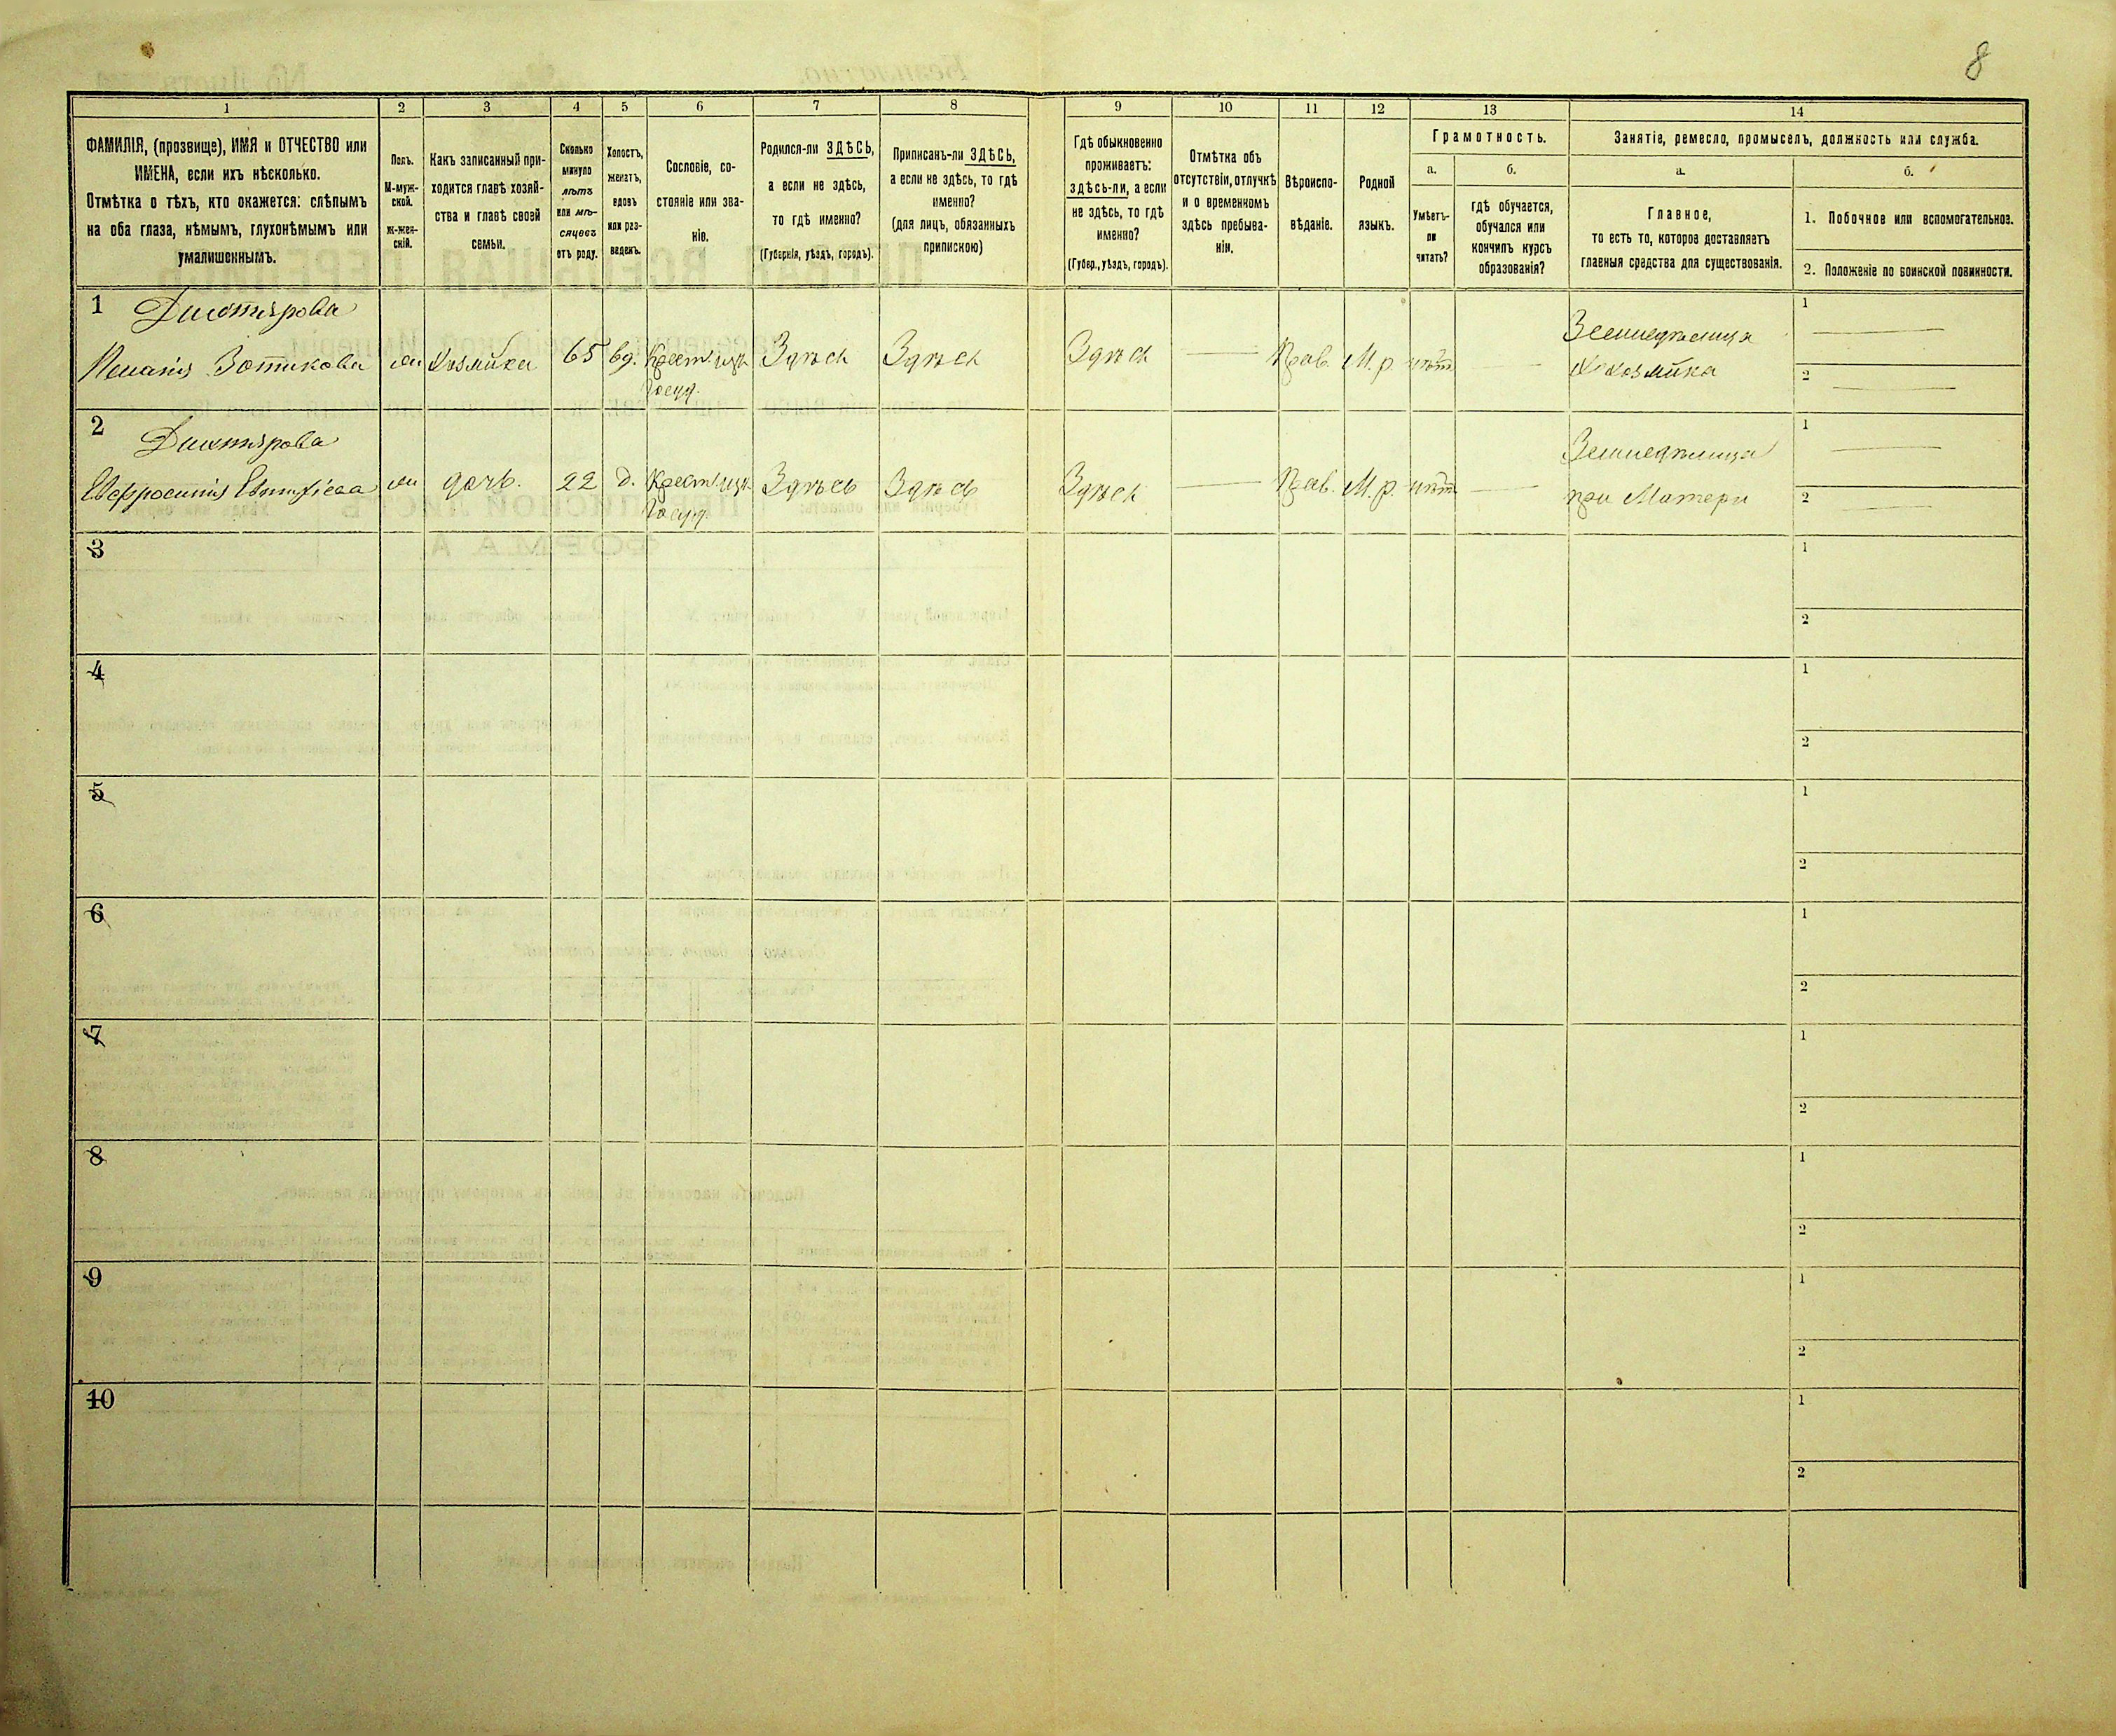 8
1 2 3 4 5 6 7 8 9 10 11 12 13 14
ФАМИЛІЯ, (прозвище), ИМЯ и ОТЧЕСТВО или
ИМЕНА, если ихъ нѣсколько.
Отмѣтка о тѣхъ, кто окажется: слѣпымъ
на оба глаза, нѣмымъ, глухонѣмымъ или
умалишеннымъ.
Полъ.
М-муж-
ской.
Ж-жен-
скій.
Какъ записанный при-
ходится главѣ хозяй-
ства и главѣ своей
семьи.
Сколько
минуло
лѣтъ
или мѣ-
сяцевъ
отъ роду.
Холостъ,
женатъ,
вдовъ
или раз-
веденъ.
Сословіе, со-
стояніе или зва-
ніе.
Родился-ли ЗДѢСЬ,
а если не здѣсь,
то гдѣ именно?
(Губернія, уѣздъ, городъ).
Приписанъ-ли ЗДѢСЬ,
а если не здѣсь, то гдѣ
именно?
(для лицъ, обязанныхъ
припискою)
Гдѣ обыкновенно
проживаетъ:
здѣсь-ли, а если
не здѣсь, то гдѣ
именно?
(Губер., уѣздъ, городъ).
Отмѣтка объ
отсутствіи, отлучкѣ
и о временномъ
здѣсь пребыва-
ніи.
Вѣроиспо-
вѣданіе.
Родной
языкъ.
Грамотность.
а.
Умѣетъ-
ли
читать?
б.
гдѣ обучается,
обучался или
кончилъ курсъ
образованія?
Занятіе, ремесло, промыселъ, должность или служба.
а.
Главное,
то есть то, которое доставляетъ
главныя средства для существованія.
б.
1. Побочное или вспомогательное.
2. Положеніе по воинской повинности.
1 Дихтярова
Зотикова Хозяйка 65 вд. Здѣсь Здѣсь Здѣсь Прав. М.р. нѣтъ
Госуд.
Земледѣлица
Хозяйка
1
2
2 Дихтярова
Евфросинія дочь. 22 д. Здѣсь Здѣсь Здѣсь Прав. М.р. нѣтъ
Госуд.
Земледѣлица
при Матери
1
2
3 1
2
4 1
2
5 1
2
6 1
2
7 1
2
8 1
2
9 1
2
10 1
2